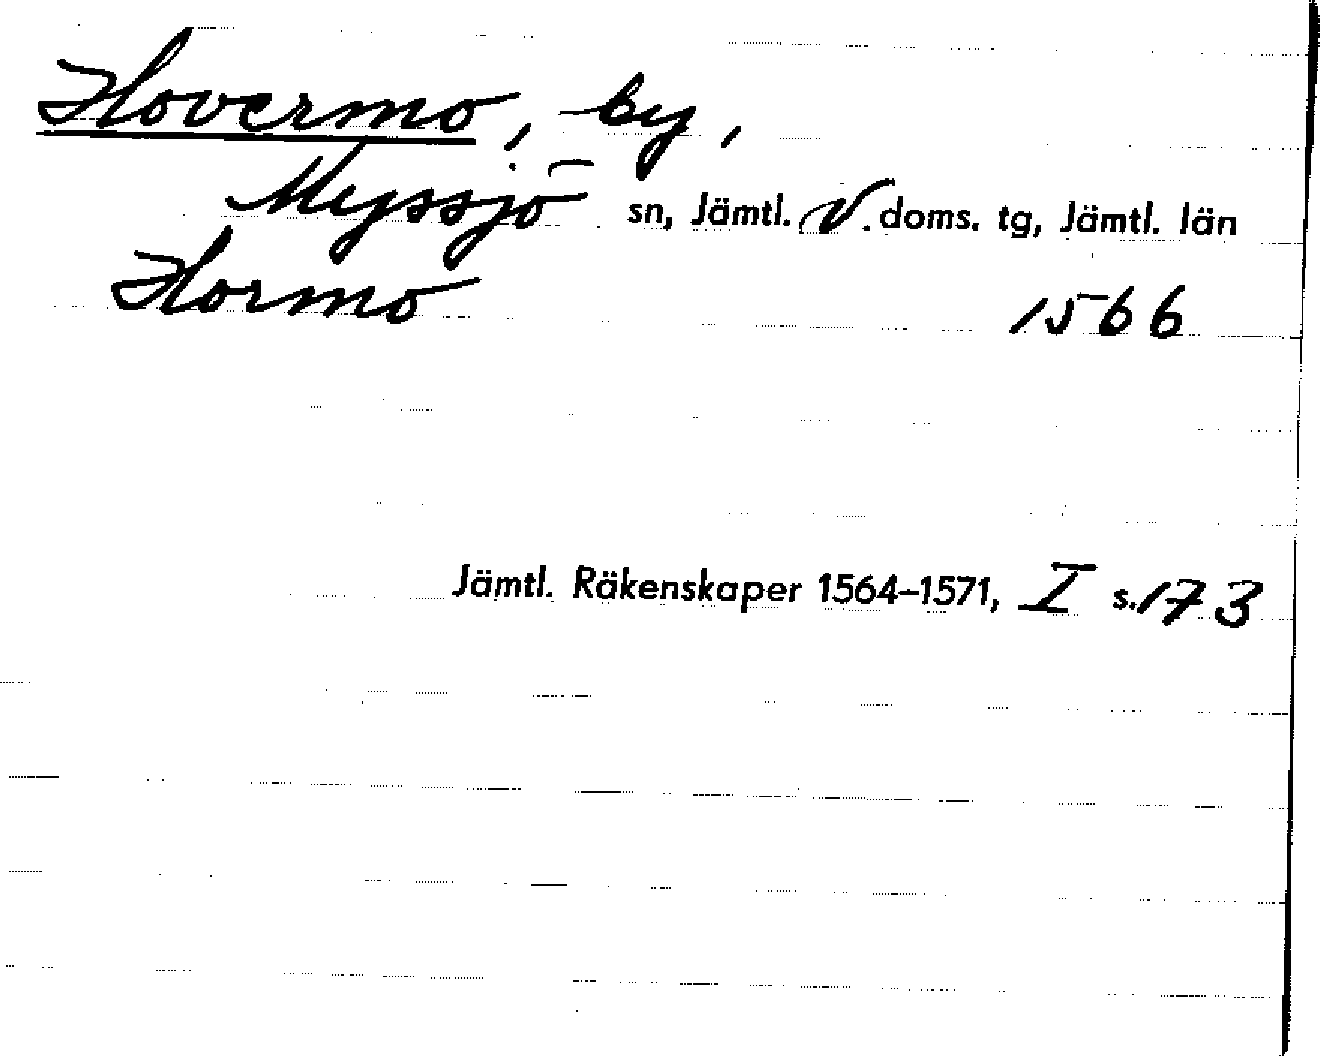 Hovermo, by,
Myssjö sn, Jämtl. V. doms. tg, Jämtl. län
Hormo 1566
Jämtl. Räkenskaper 1564–1571, I s. 173